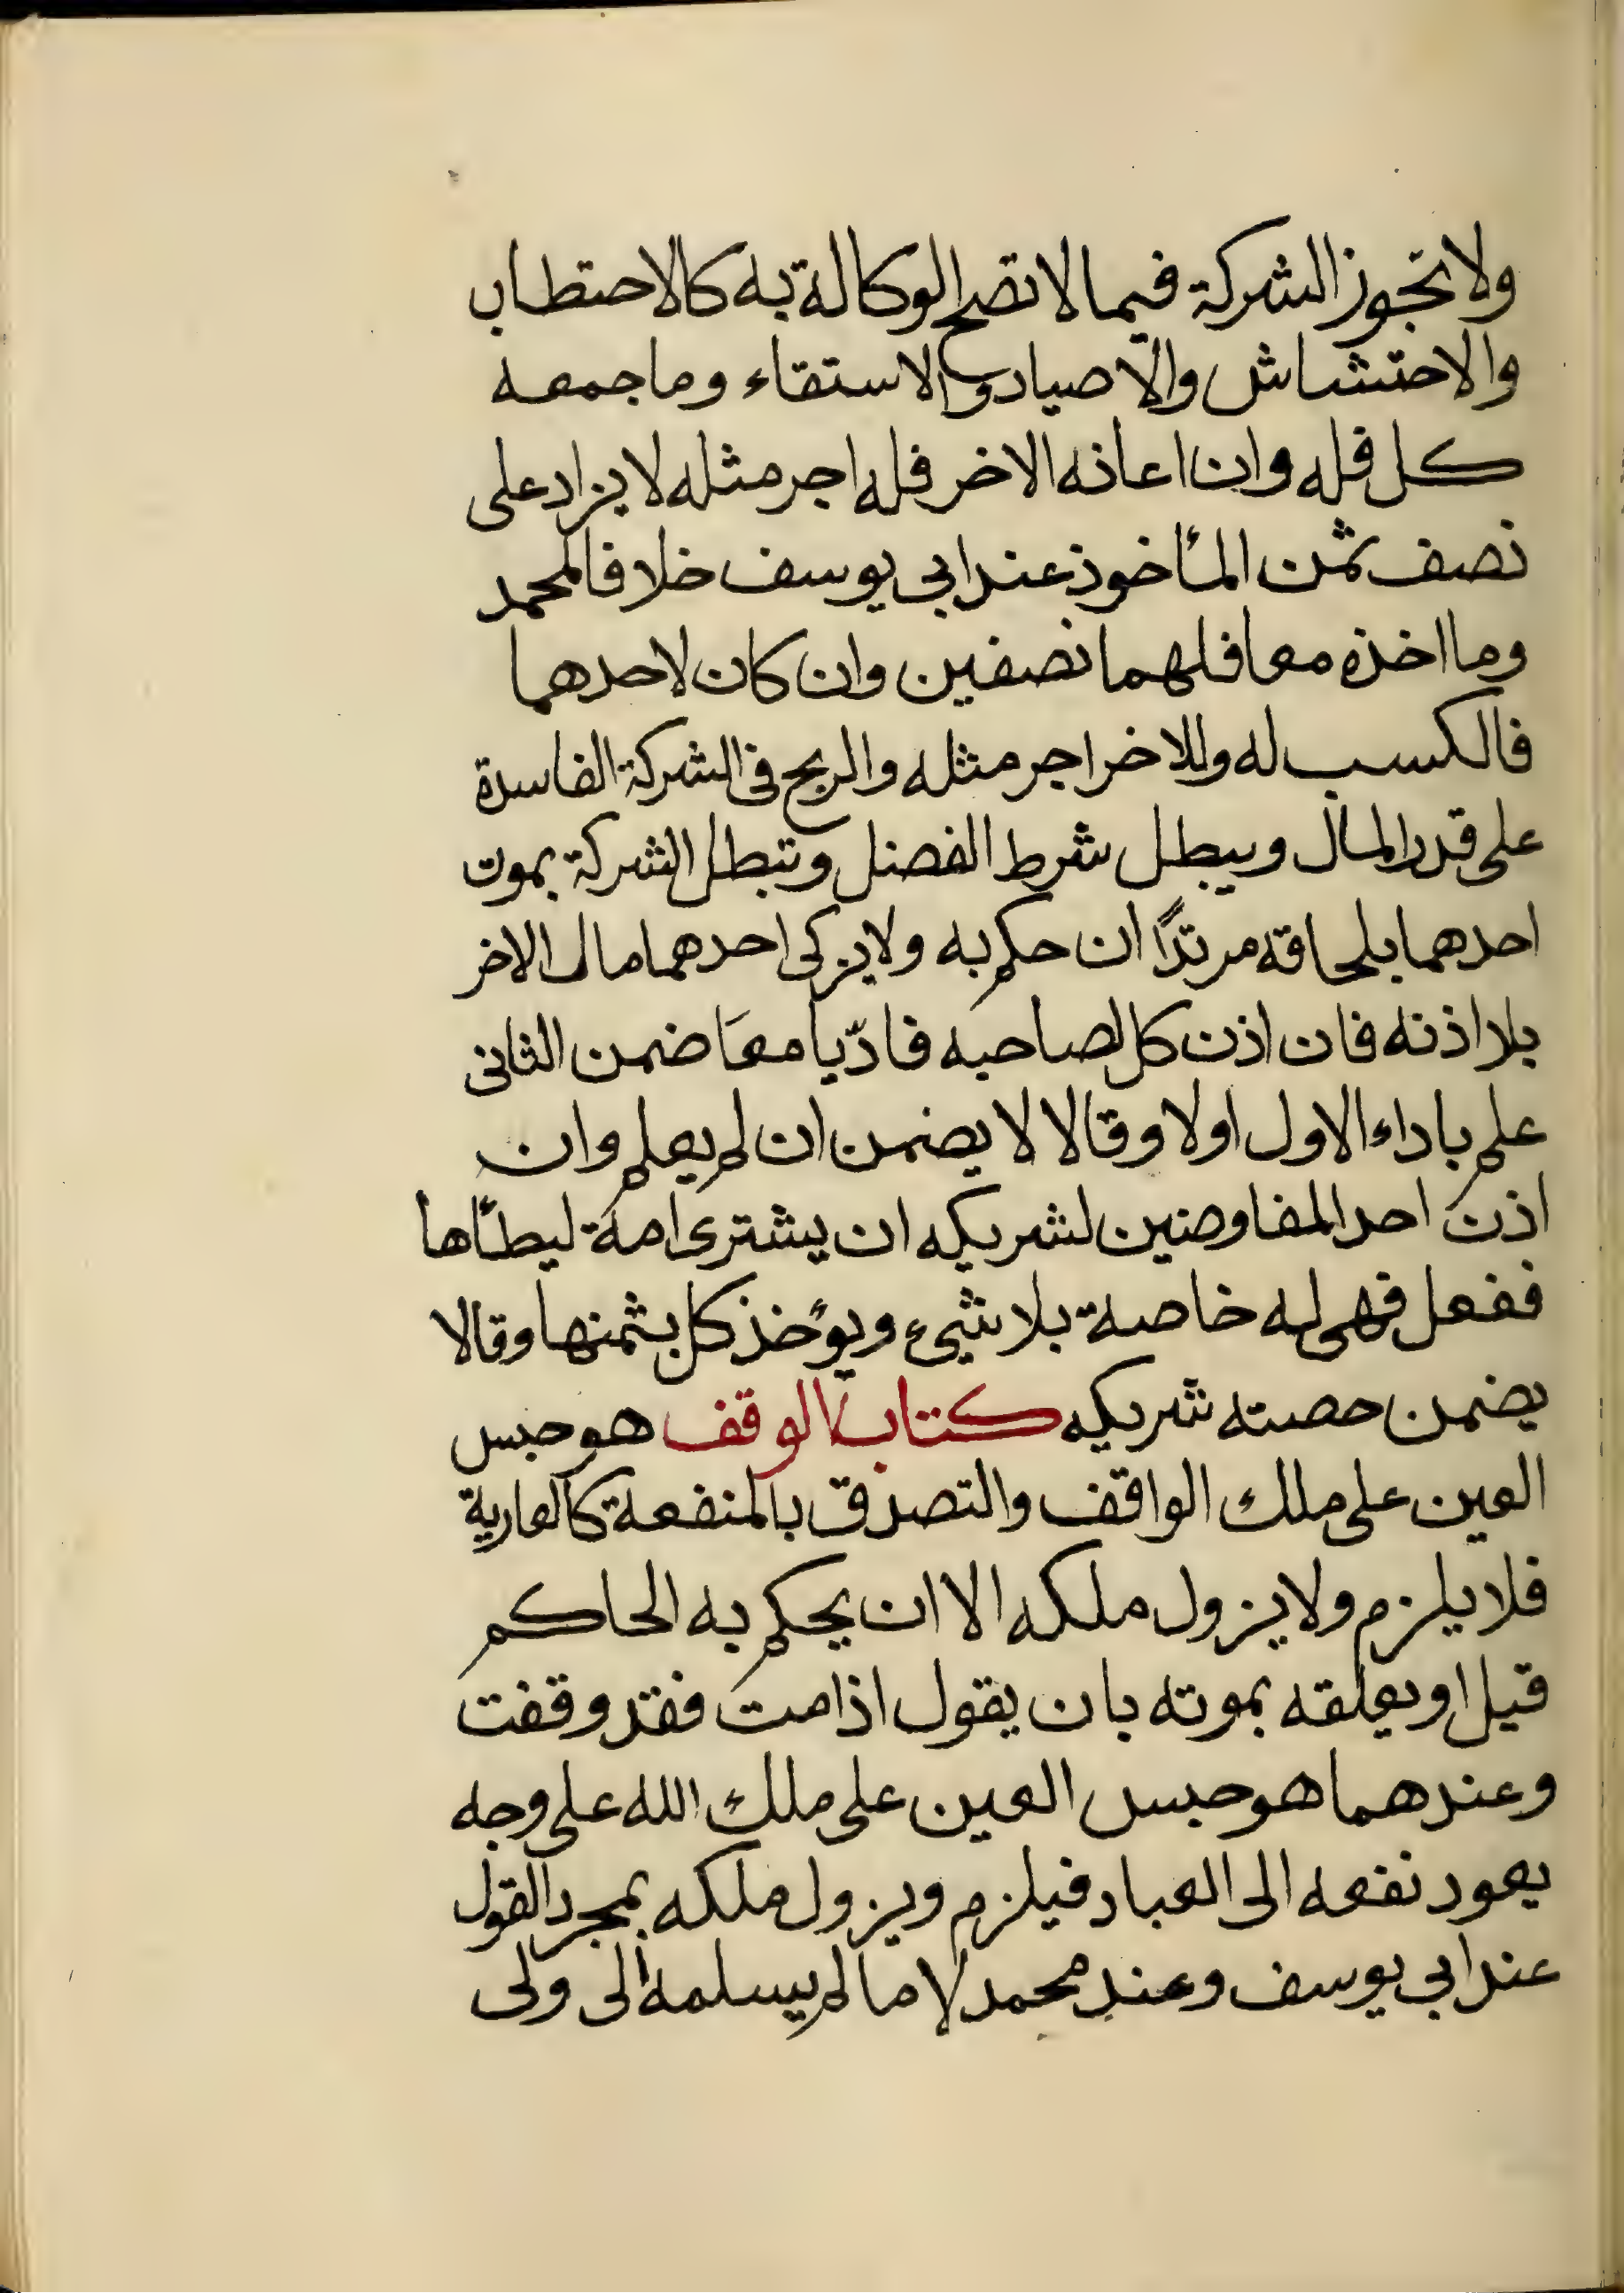 ولا تجوز الشركة فيما لا تصح الوكالة به كالاحتطاب
والاحتشاش والاصياد والاستقاء وما جمعه
كل فله وان اعانه الاخر فله اجر مثله لا يزاد على
نصف ثمن المأخوذ عند ابى يوسف خلافا لمحمد
وما اخذه معا فلهما نصفين وان كان لاحدهما
فالكسب له وللاخر اجر مثله والربح فى الشركة الفاسدة
على قدر المال ويبطل شرط الفضل وتبطل الشركة بموت
احدهما بلحاقه مرتدًا ان حكم به ولا يزكى احدهما مال الاخر
بلا اذنه فان اذن كل لصاحبه فادّيا معًا ضمن الثانى
علم باداء الاول اولا وقالا لا يضمن ان لم يعلم وان
اذن احد المفاوضين لشريكه ان يشترى امة ليطأها
ففعل فهى له خاصة بلا شىء ويؤخذ كل بثمنها وقالا
يضمن حصته شريكه كتاب الوقف هو حبس
العين على ملك الواقف والتصدق بالمنفعة كالعارية
فلا يلزم ولا يزول ملكه الا ان يحكم به الحاكم
قيل او يعلقه بموته بان يقول اذا مت فقد وقفت
وعندهما هو حبس العين على ملك الله على وجه
يعود نفعه الى العباد فيلزم ويزول ملكه بمجرد القول
عند ابى يوسف وعند محمد لا ما لم يسلمه الى ولى